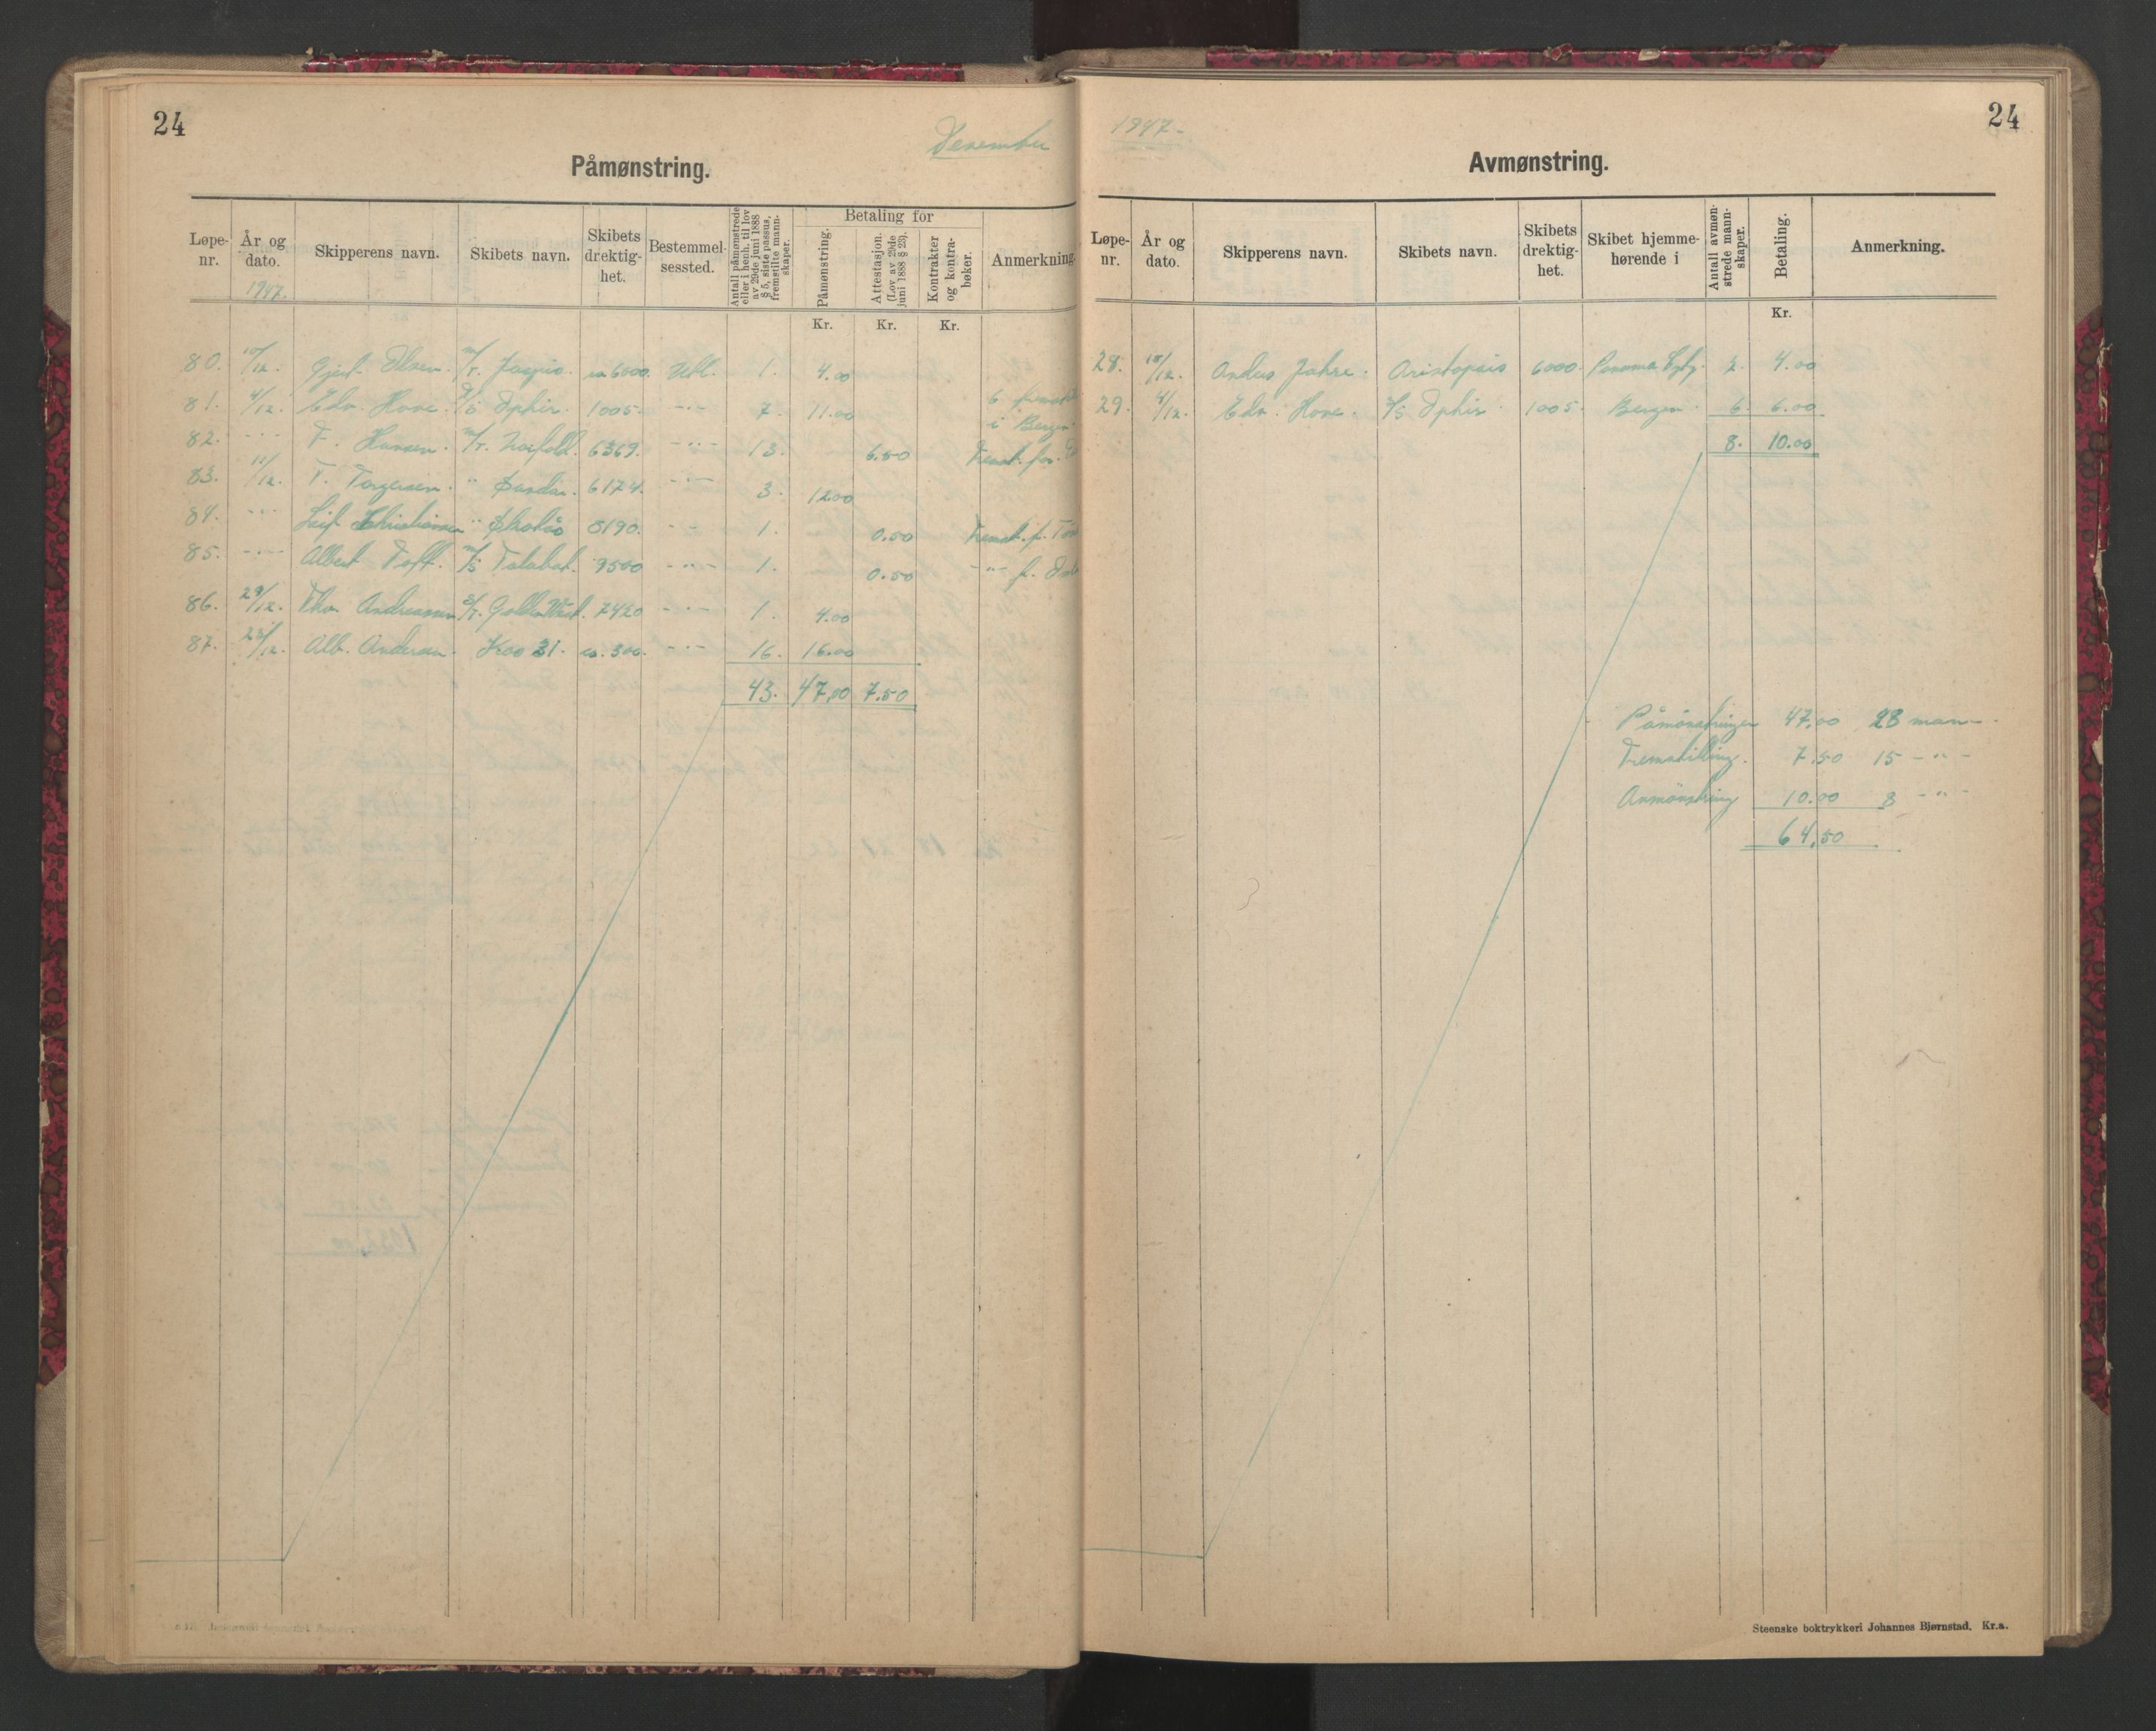 24
Desember
Påmønstring.
Løpe-nr.
År og dato.
1947.
Skipperens navn.
Skibets navn.
Skibets drektig-het.
Bestemmel-sessted.
Antall påmønstrede eller i henh. til lov av 29de juni 1888 § 5, siste passus, fremstilte mann-skaper.
Betaling for
Påmønstring.
Attestasjon. (Lov av 29de juni 1888 § 23).
Kontrakter og kontra-bøker.
Anmerkning.
Kr. Kr. Kr.
80. 10/12. Olsen. m/T. Jaspis. ca 6000. Utl. 1. 4.00
81. 4/12. Edv. Hove. D/S Ophir. 1005. -"- 7. 11.00 6
i Bergen.
82. -"- F. Hansen. m/T. 6369. -"- 13. 6.50 Fremst. for.
83. 11/12. T. Torgersen. " Sandar. 6174. -"- 3. 12.00
84. -"- Leif Christiansen " 8190. -"- 1. 0.50 Fremst. f.
85. -"- Albert Toft. m/S Talabot. 9500 -"- 1. 0.50 -"- f.
86. 29/12. Thv. Andreassen S/T. Golden West. 7420 -"- 1. 4.00
87. 23/12. Alb. Andersen. Kos 31. ca. 300. -"- 16. 16.00
43. 47,00 7.50
1947.-
24
Avmønstring.
Løpe-nr.
År og dato.
Skipperens navn.
Skibets navn.
Skibets drektig-het.
Skibet hjemme-hørende i
Antall avmøn-strede mann-skaper.
Betaling.
Anmerkning.
Kr.
28. 10/12. Anders Jahre. Aristopais 6000. Panama 2. 4.00
29. 4/12. Edv. Hove. D/S Ophir. 1005. Bergen. 6. 6.00
8. 10.00
Påmønstringer 47,00 28 man-
Fremstilling. 7,50 15 -"-
Avmønstring 10.00 8 -"-
64,50
Steenske boktrykkeri Johannes Bjørnstad. Kr.a.